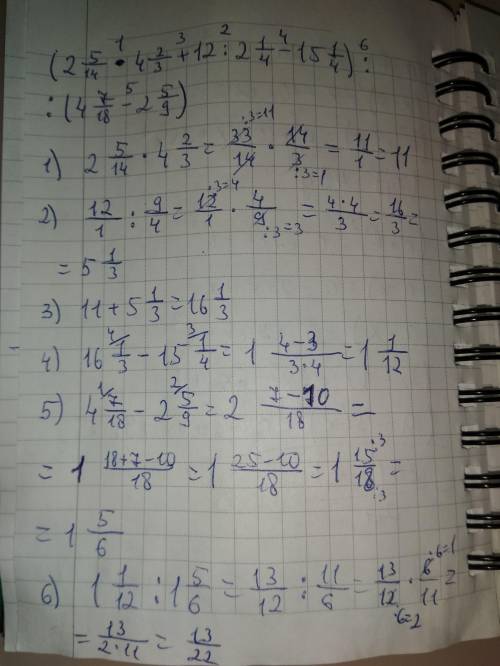 (2 5/14 · 4 2/3 + 12 : 2 1/4 - 15 1/4) :
1 3 2 4 6
: (4 7/18 - 2 5/9)
5
1) 2 5/14 · 4 2/3 = 33/14 · 14/3 = 11/1 = 11
:3=11
:3=1
2) 12/1 : 9/4 = 12/1 · 4/9 = 4·4/3 = 16/3 =
:3=4
:3=3
= 5 1/3
3) 11 + 5 1/3 = 16 1/3
4) 16 4/1/3 - 15 3/1/4 = 1 4-3/3·4 = 1 1/12
5) 4 1/7/18 - 2 2/5/9 = 2 7-10/18 =
= 1 18+7-10/18 = 1 25-10/18 = 1 15/18 =
:3
:3
= 1 5/6
6) 1 1/12 : 1 5/6 = 13/12 : 11/6 = 13/12 · 6/11 =
:6=1
:6=2
= 13/2·11 = 13/22